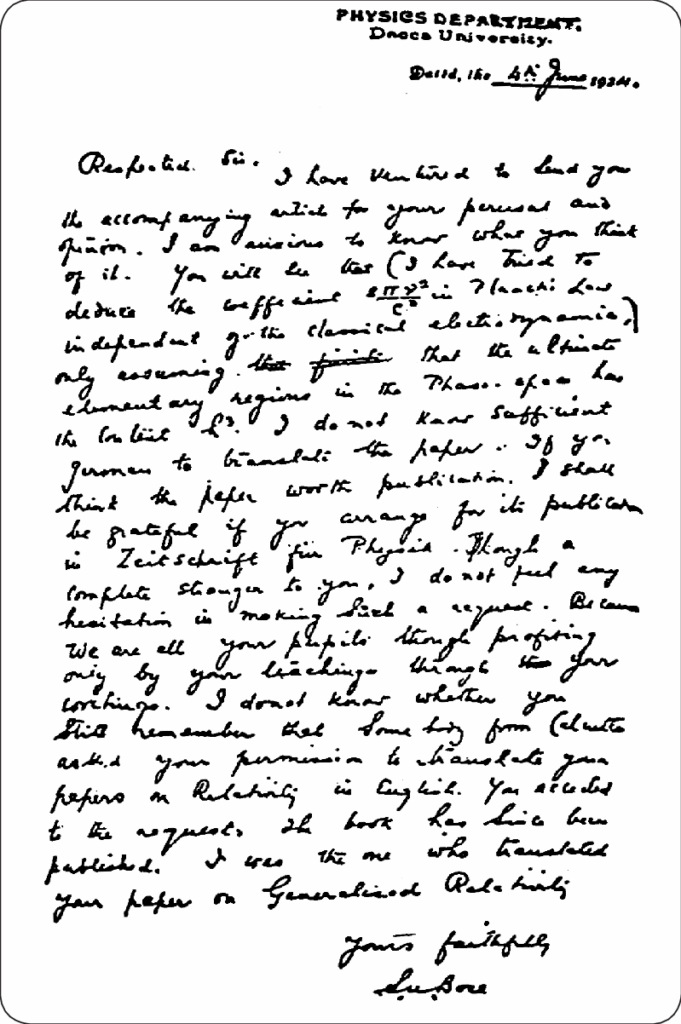 PHYSICS DEPARTMENT.
Dacca University.
Dated, the 4th June 1924.
Respected Sir. I have ventured to send you
the accompanying article for your perusal and
opinion. I am anxious to know what you think
of it. You will see that (I have tried to
deduce the coefficient 8πν²/c³ in Planck's Law
independent of the classical electrodynamics)
only assuming that the ultimate
elementary regions in the Phase-space has
the content h³. I do not know sufficient
german to translate the paper. If you
think the paper worth publication. I shall
be grateful if you arrange for its publication
in Zeitschrift für Physik. Though a
complete stranger to you, I do not feel any
hesitation in making such a request. Because
We are all your pupils though profiting
only by your teachings through your
writings. I donot know whether you
still remember that Somebody from Calcutta
asked your permission to translate your
papers on Relativity in English. You acceded
to the request. The book has since been
published. I was the one who translated
your paper on Generalised Relativity
Yours faithfully
S.N.Bose